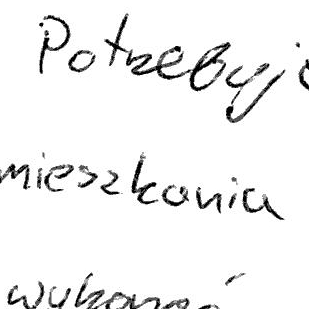 Potrzebuję
mieszkania
wykonać